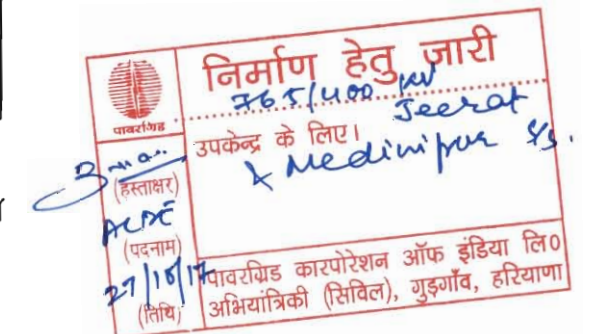 निर्माण हेतु जारी
765/400 kV
Jeerat
उपकेन्द्र के लिए।
& Medinipur S/s.
पावरग्रिड
(हस्ताक्षर)
(पदनाम)
27/10/17
(तिथि)
पावरग्रिड कारपोरेशन ऑफ इंडिया लि०
अभियांत्रिकी (सिविल), गुड़गाँव, हरियाणा